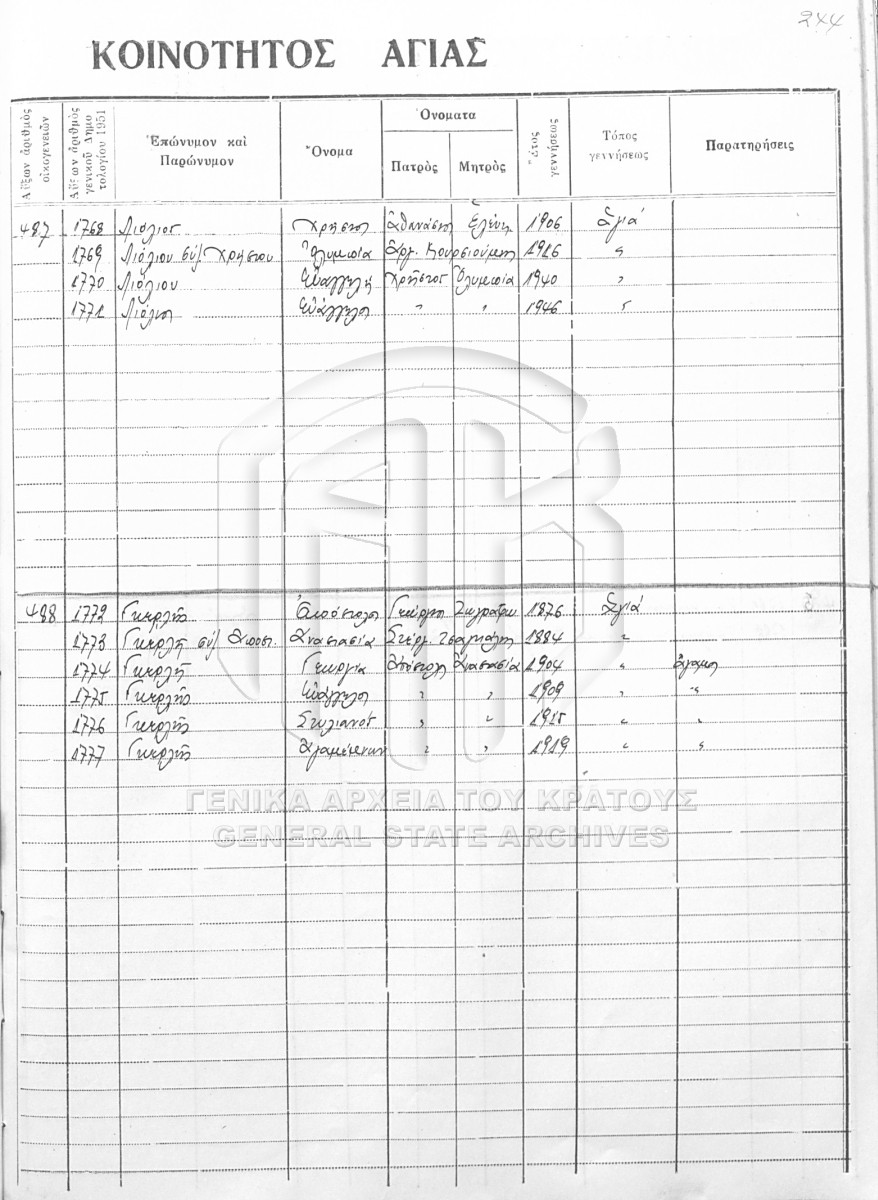 244
ΚΟΙΝΟΤΗΤΟΣ ΑΓΙΑΣ
Αὔξων ἀριθμὸς οἰκογενειῶν
Αὔξων ἀριθμὸς γενικοῦ Δημοτολογίου 1951
Ἐπώνυμον καὶ Παρώνυμον
Ὄνομα
Ὀνοματα
Πατρὸς Μητρὸς
Ἔτος γεννήσεως
Τόπος γεννήσεως
Παρατηρήσεις
487 1768 Λιόλιος Χρῆστος Ἀθανάσιος Ἑλένη 1906 Ἁγιά
1769 Λιόλιου συζ. Χρήστου Ὀλυμπία 1916 "
1770 Λιόλιου Εὐαγγελὴ Χρῆστος Ὀλυμπία 1940 "
1771 Λιόλιος Εὐάγγελος " " 1946 "
488 1772 Γκερλῆς Ἀπόστολος Γεώργιος 1876 Ἁγιά
1773 Γκερλῆ συζ. Ἀποστ. Ἀναστασία Στέργ. 1884 "
1774 Γκερλῆ Γεωργία Ἀπόστολ Ἀναστασία 1904 " ἄγαμος
1775 Γκερλῆς Εὐάγγελος " " 1909 " "
1776 Γκερλῆς Στυλιανὸς " " 1915 " "
1777 Γκερλῆς Ἀγαμέμνων " " 1919 " "
ΓΕΝΙΚΑ ΑΡΧΕΙΑ ΤΟΥ ΚΡΑΤΟΥΣ
GENERAL STATE ARCHIVES